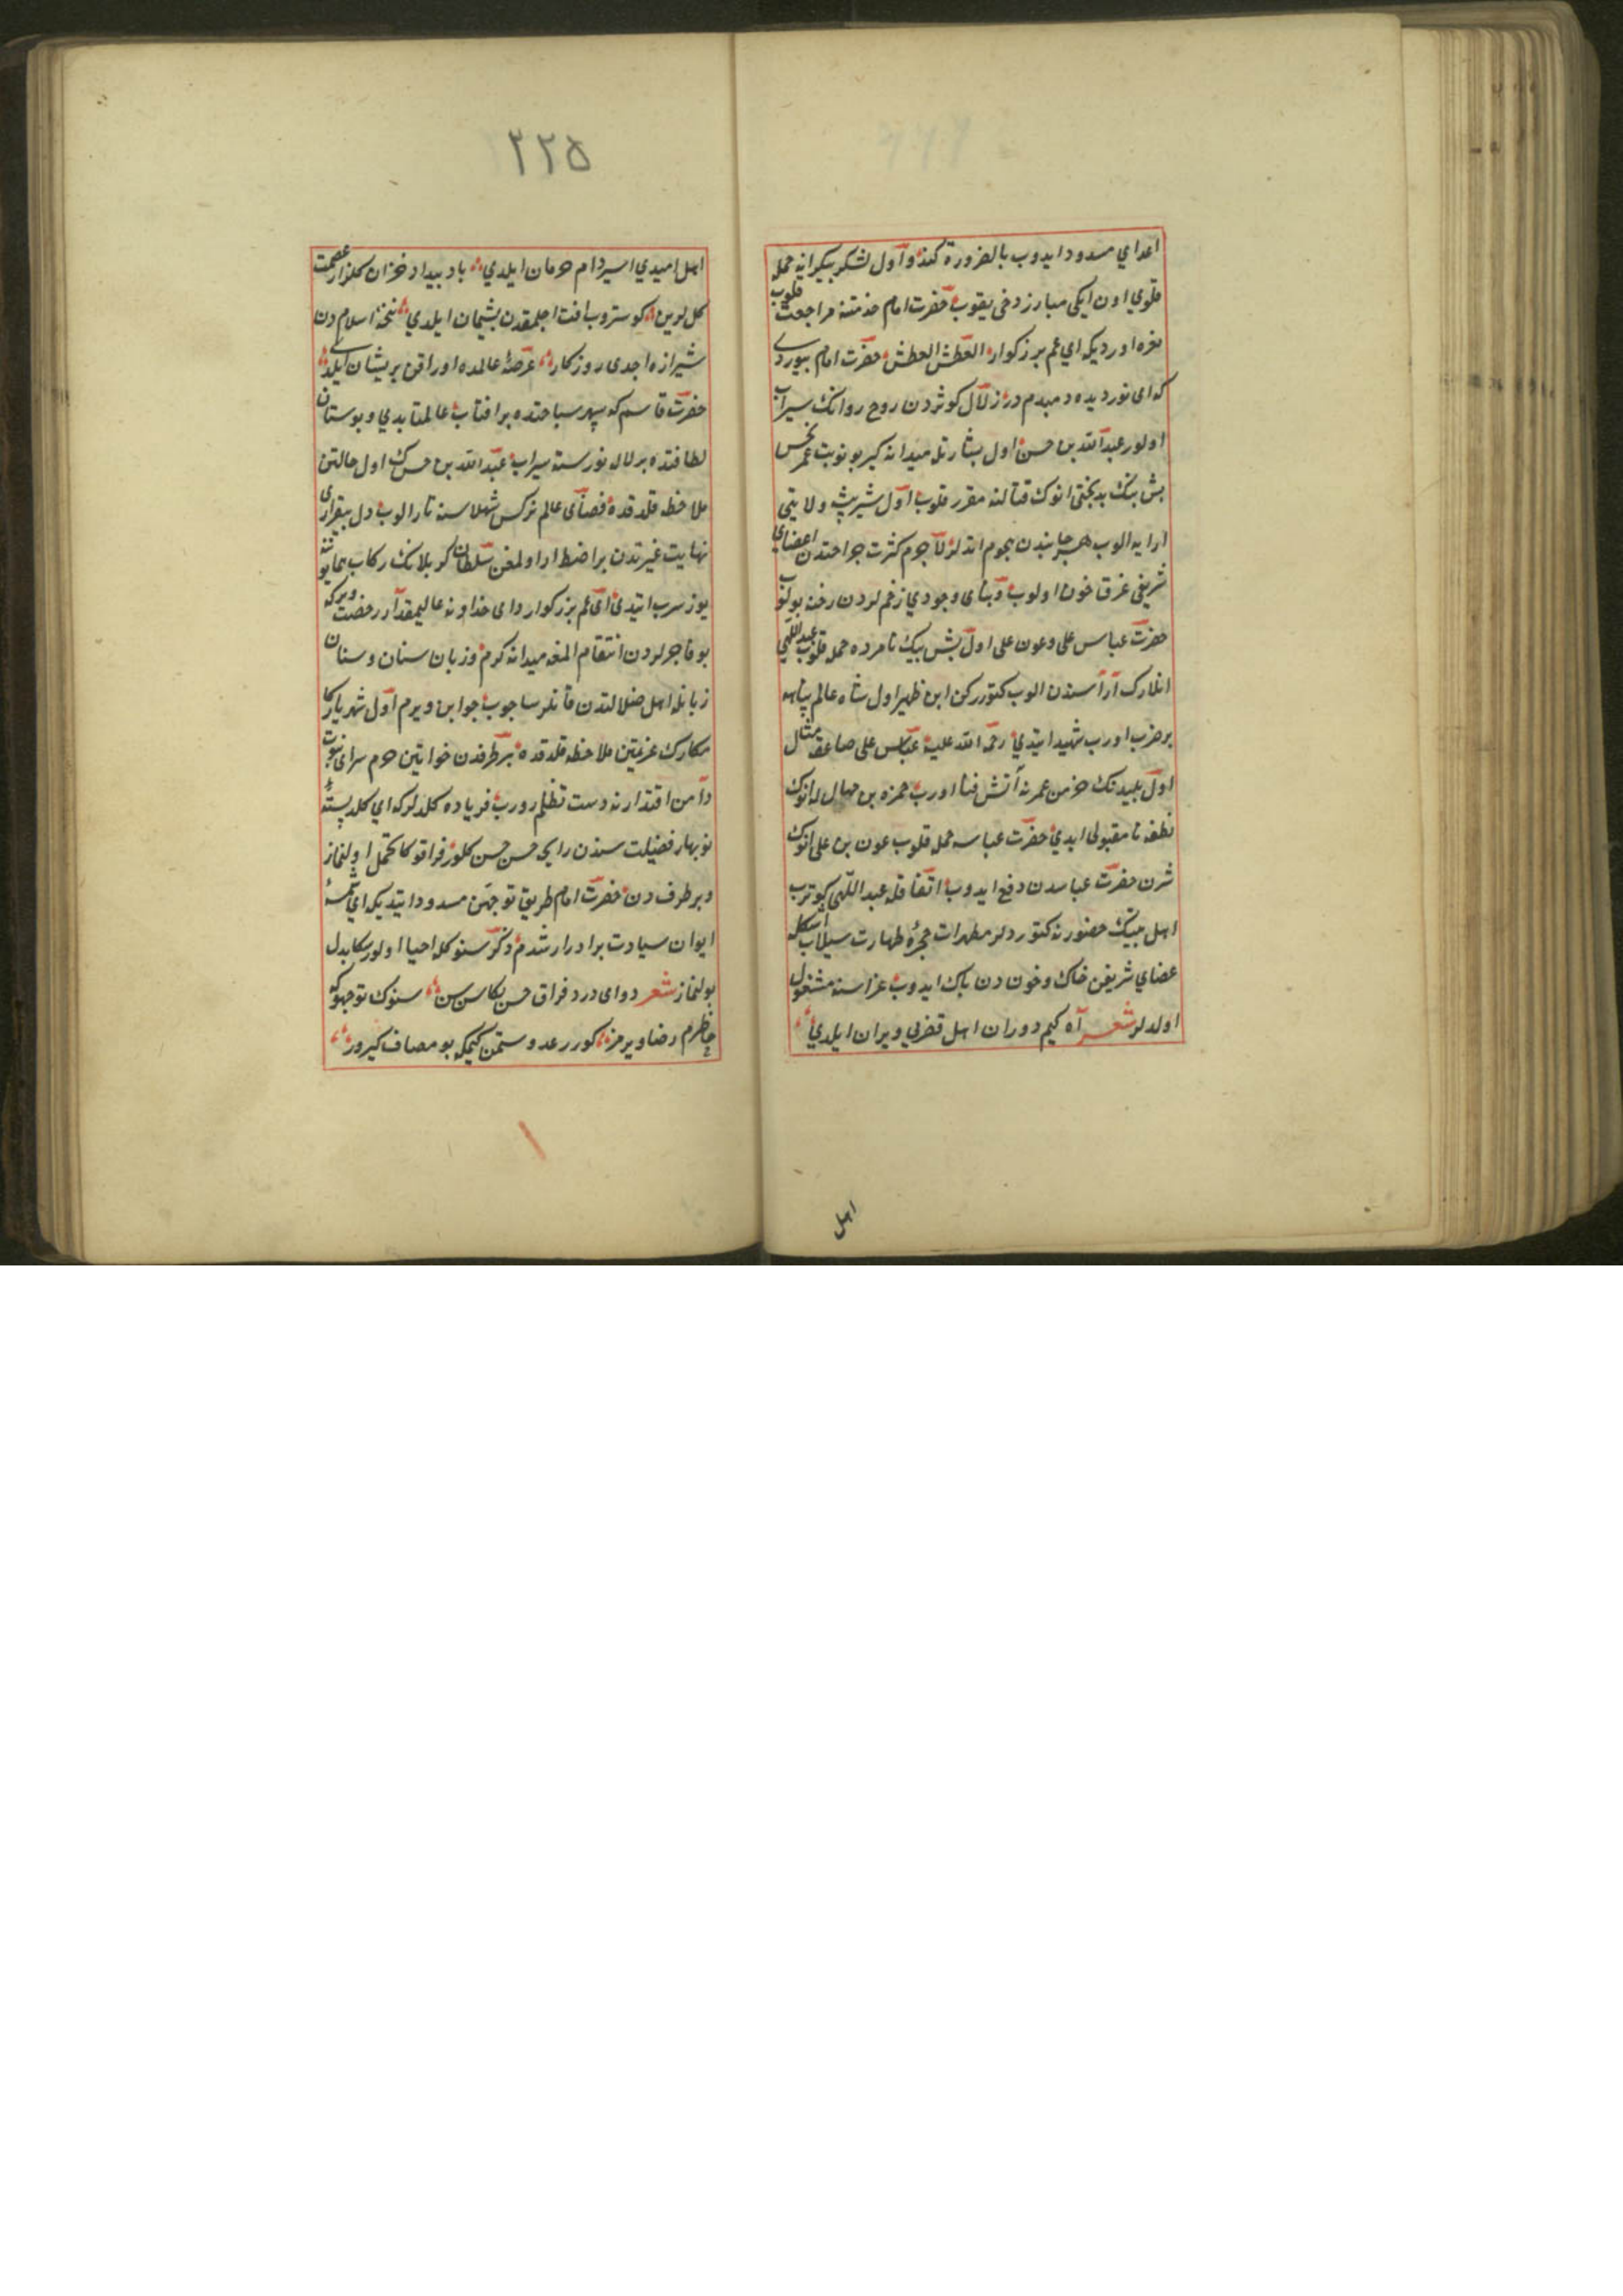 اعداي مسدود ايدوب بالضرورة كندو اول لشكر بيكرانه حمله
قلوب اون ايكي مبارز دخى يقوب حضرت امام خدمتنه مراجعت قلوب
نعره اورديكه اي عم بزركوار العطش العطش حضرت امام بيوردى
كه اى نور ديده دمبدم در زلال كوثردن روح روانك سيراب
اولور عبد الله بن حسن اول بشارتله ميدانه كيرب بو نوبت عمر نحس
بش بيك بدبختى انوك قتالنه مقرر قلوب اول شير بيشه ولايتى
ارايه الوب هر جانبدن هجوم اتدلر لاجرم كثرت جراحتدن اعضاى
شريفى غرق خون اولوب وبناى وجودي زخم لردن رخنه بولوب
حضرت عباس على وعون على اول بش بيك نامرده حمله قلوب عبد اللهى
انلارك آراسندن الوب كتورركن ابن ظهير اول شاه عالم پناهه
بر ضرب اورب شهيد ايتدي رحمة الله عليه عباس على صاعقه مثال
اول پليدنك خرمن عمرنه آتش فنا اورب حمزه بن مهال له انوك
نطفه نامقبولى ايدي حضرت عباسه حمله قلوب عون بن على انوك
شرن حضرت عباسدن دفع ايدوب اتفاقله عبد اللهى كوترب
اهل بيتك حضورنه كتورديلر مطهرات حجرۀ طهارت سيلاب اشكله
عضاي شريفن خاك وخون دن پاك ايدوب عزاسنه مشغول
اولدلر شعر آه كيم دوران اهل قضرلي ويران ايلدي
اهل
٢٢٥
اهل اميدي اسير دام حرمان ايلدي باد بيداد خزان كلزار عصمت
كل لرين كوستروب افت اچلمقدن پشيمان ايلدي نسخۀ اسلام دن
شيرازه اجدى روزكار عرصۀ عالمده اوراقن پريشان ايلدي
حضرت قاسم كه سپهر سباحتده بر افتاب عالمتابدي وبوستان
لطافتده بر لاله نورسته سيراب عبد الله بن حسنك اول حالتن
ملاحظه قلدقده فضاى عالم نركس شهلاسنه تار الوب دل بيقرارى
نهايت غيرتدن پر اضطرار اولمغن سلطان كربلانك ركاب همايوننه
يوز سرب ايتدى اى عم بزركوار واى خداوند عاليمقدار رخصت ويركه
بو فاجرلردن انتقام المغه ميدانه كرم وزبان سنان وسنان
زبانله اهل ضلالتدن قانلر ساچوب جوابن ويرم اول شهريار كا
مكارك عزيمتين ملاحظه قلدقده بر طرفدن خواتين حرم سراى نبوت
دامن اقتدارنه دست تظلم اورب فرياده كلدلركه اي كلدستۀ
نوبهار فضيلت سندن رايحۀ حسن حسن كلور فراقوكا تحمل اولنماز
وبر طرف دن حضرت امام طريق توجهن مسدود ايتديكه اي شمسۀ
ايوان سيادت برادر ارشدم ذكر سنوكله احيا اولور سكا بدل
بولنماز شعر دواى درد فراق حسن بكا سن سن سنوك توجهوكه
خاطرم رضا ويرمز كورر عدو ستمن كيمكه بو مصاف كيرور